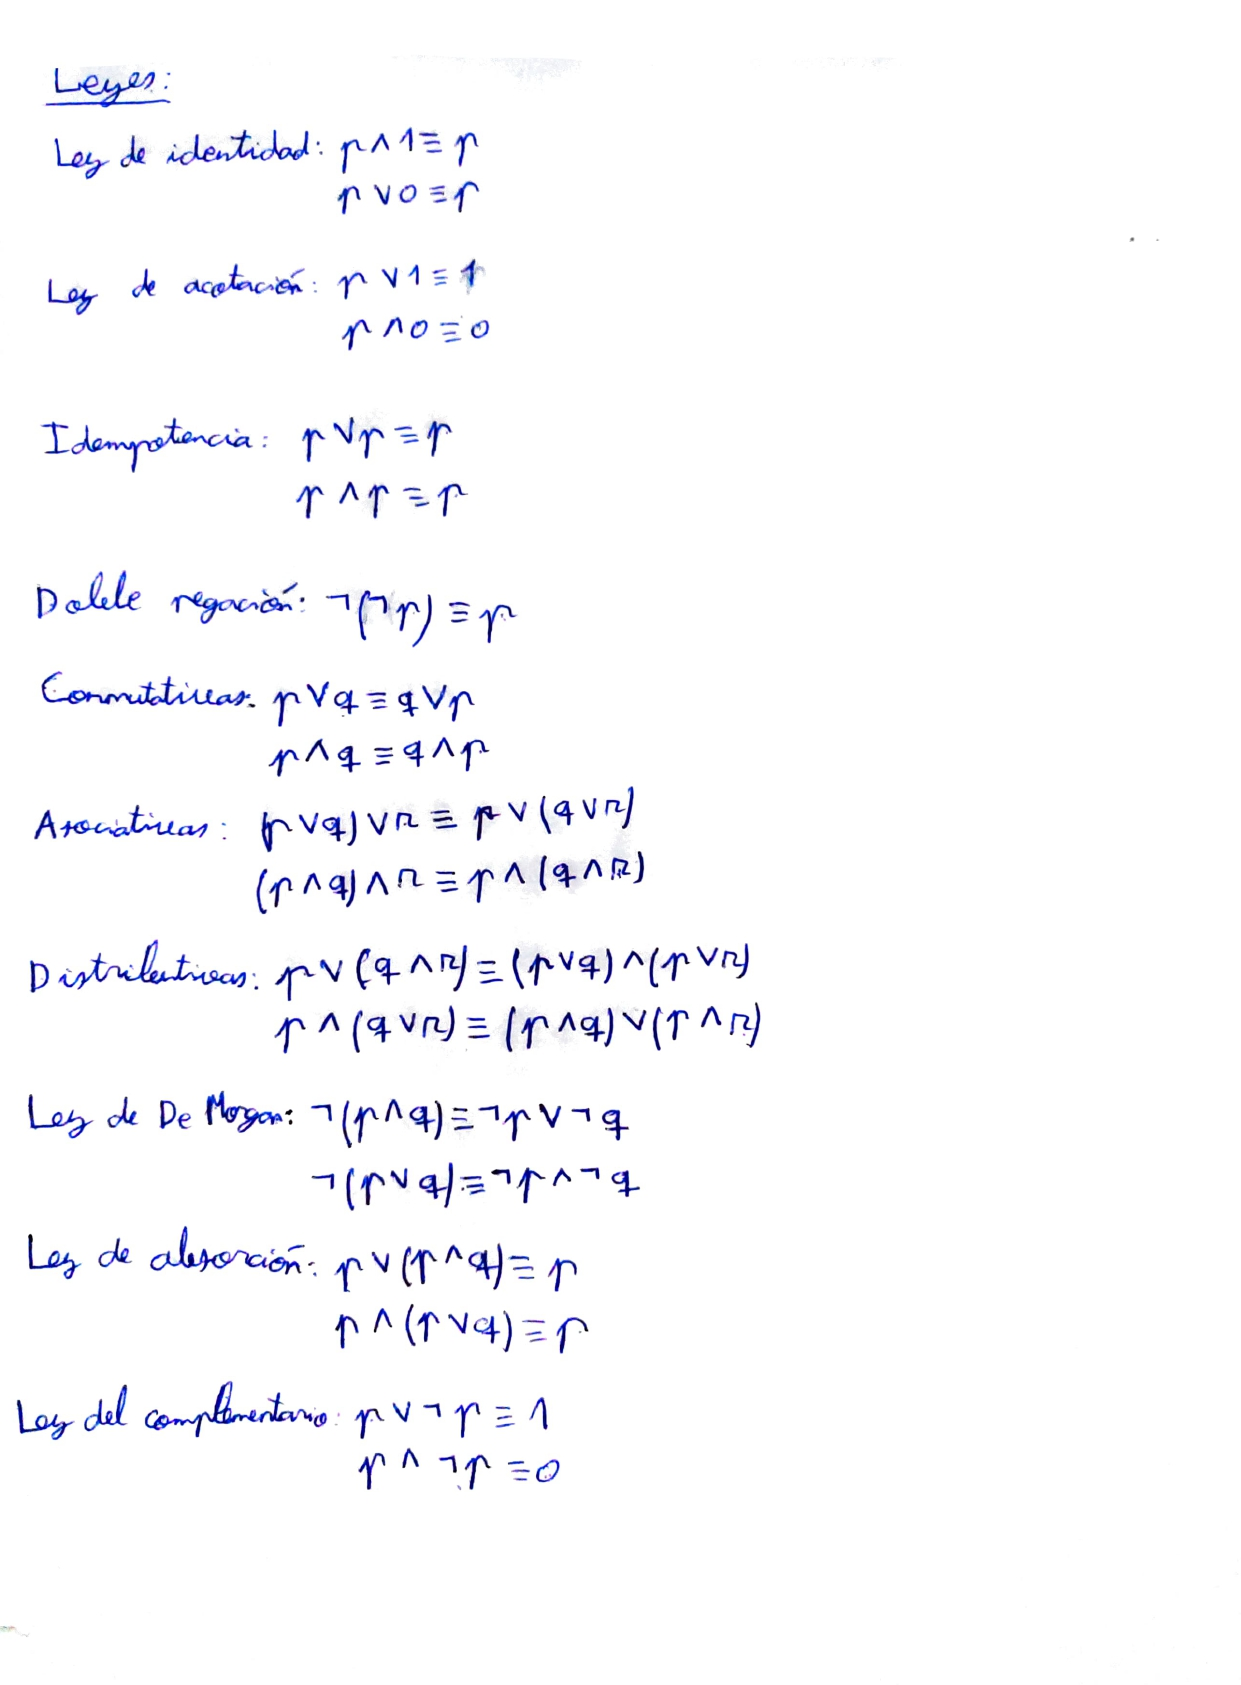 Leyes:
Ley de identidad: p ∧ 1 ≡ p
p ∨ 0 ≡ p
Ley de acotación: p ∨ 1 ≡ 1
p ∧ 0 ≡ 0
Idempotencia: p ∨ p ≡ p
p ∧ p ≡ p
Doble negación: ¬(¬p) ≡ p
Conmutativas: p ∨ q ≡ q ∨ p
p ∧ q ≡ q ∧ p
Asociativas: (p ∨ q) ∨ r ≡ p ∨ (q ∨ r)
(p ∧ q) ∧ r ≡ p ∧ (q ∧ r)
Distributivas: p ∨ (q ∧ r) ≡ (p ∨ q) ∧ (p ∨ r)
p ∧ (q ∨ r) ≡ (p ∧ q) ∨ (p ∧ r)
Ley de De Morgan: ¬(p ∧ q) ≡ ¬p ∨ ¬q
¬(p ∨ q) ≡ ¬p ∧ ¬q
Ley de absorción: p ∨ (p ∧ q) ≡ p
p ∧ (p ∨ q) ≡ p
Ley del complementario: p ∨ ¬p ≡ 1
p ∧ ¬p ≡ 0